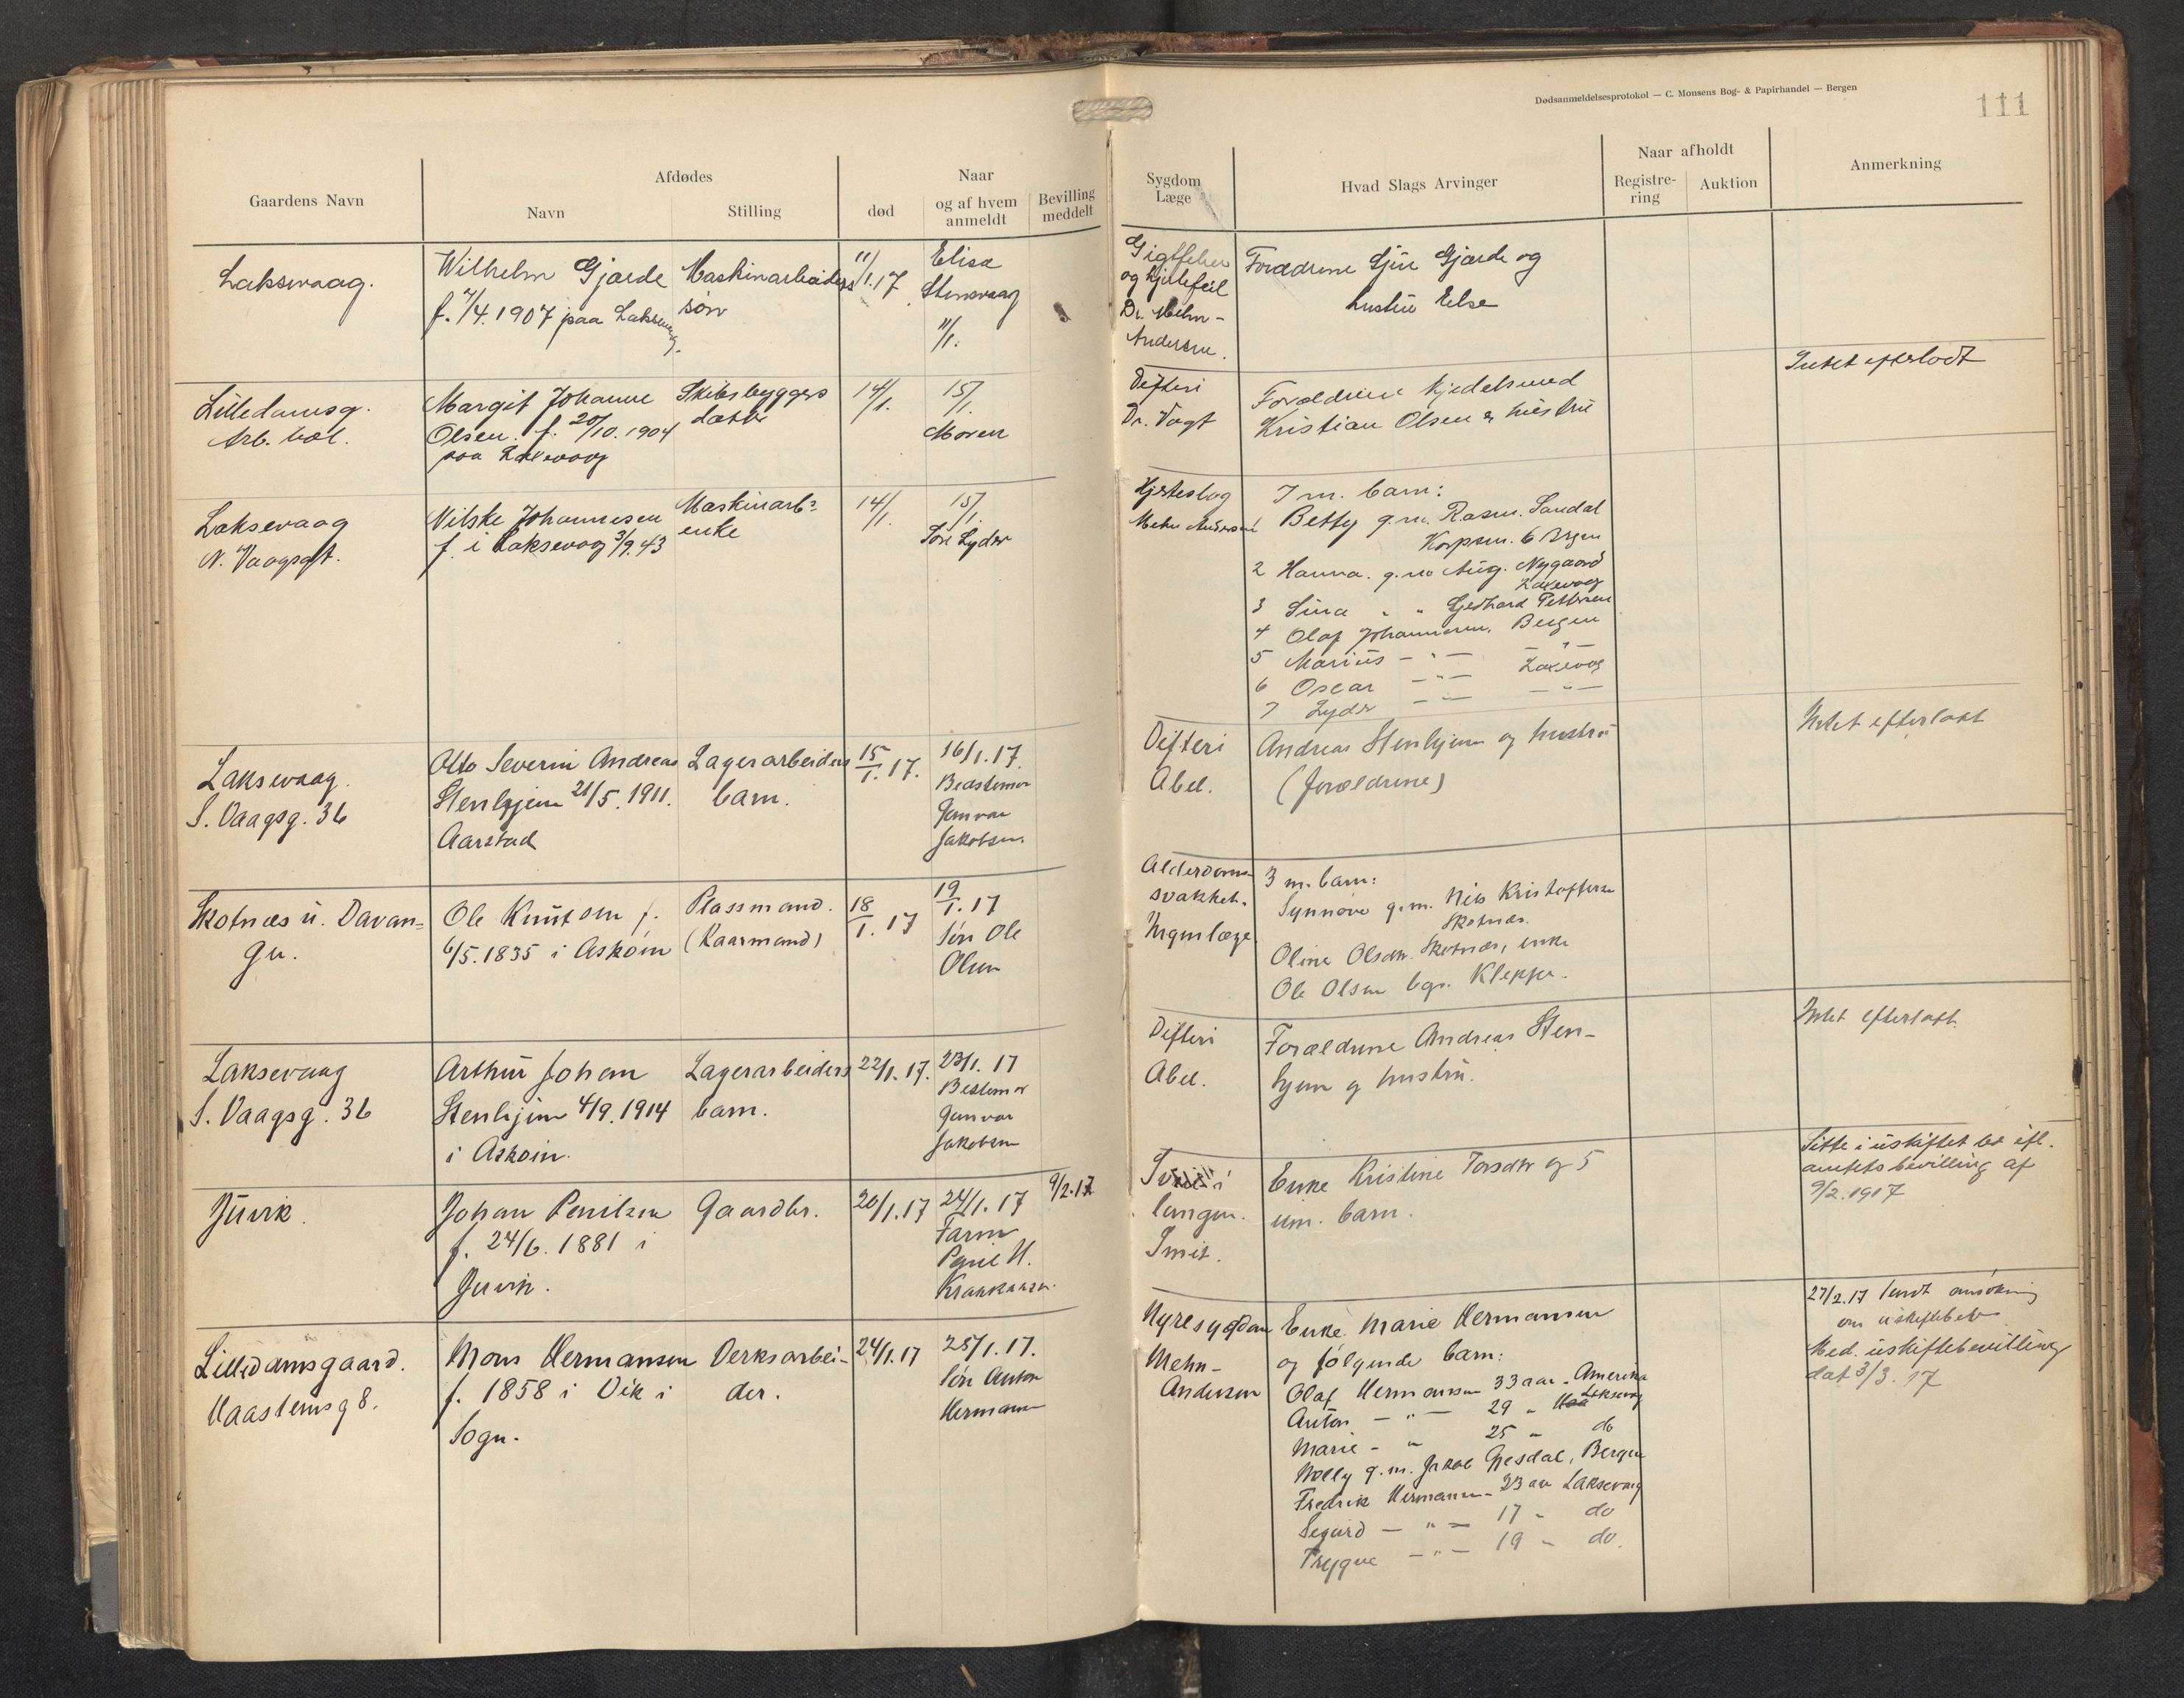 Dødsanmeldelsesprotokol — C. Monsens Bog- & Papirhandel — Bergen
111
Gaardens Navn
Afdødes
Navn
Stilling
død
Naar
og af hvem
anmeldt
Bevilling
meddelt
Sygdom
Læge
Hvad Slags Arvinger
Naar afholdt
Registre-
ring
Auktion
Anmerkning
Laksevaag.
Wilhelm Gjærde
f. 7/4.1907 paa Laksevaag.
Maskinarbeiders
søn
11/1.17
Elisa
Stensvaag
11/1.
Gigtfeber
og hjertefeil
Dr. Mehn-
Andersen.
Forældrene Gjert Gjærde og
hustru Else
Lilledamsg.
Arb. bol.
Margit Johanne
Olsen. f. 20/10.1904
paa Laksevaag
Skibsbyggers
datter
14/1.
15/1.
Moren
Difteri
Dr. Vogt
Forældrene Kjedelsmed
Kristian Olsen & hustru
Intet efterladt
Laksevaag
N. Vaagsgt.
Nilske Johannesen
f. i Laksevaag 3/9.43
Maskinarb.
enke
14/1.
15/1.
Søn Lyder
Hjerteslag
Mehn Andersen
7 m. barn:
Betty g.m. Rasm. Sandal
Korpsm. 6 Bergen
2 Hanna. g.m Aug. Nygaard
Laksevaag
3 Sina " " Gerhard Pettersen
4 Olaf Johannesen, Bergen
5 Marius — " — — " —
6 Oscar — " — Laksevaag
7 Lyder — " — — " —
Laksevaag.
S. Vaagsg. 36
Otto Severin Andreas
Stenhjem 21/5.1911.
Aarstad
Lagerarbeiders
barn.
15/1.17.
16/1.17.
Bedstemor
Gunvor
Jakobsen.
Difteri
Abel.
Andreas Stenhjem og hustru
(forældrene)
Intet efterladt
Skotnæs u. Davan-
gr.
Ole Knutsen f.
6/5.1835 i Askøen
Plassmand.
(Kaarmand)
18/1.17
19/1.17
Søn Ole
Olsen
Alderdoms-
svakhet.
Ingen læge
3 m. barn:
Synnøve g.m. Nils Kristoffersen
Skotnæs.
Oline Olsdtr. Skotnæs, enke
Ole Olsen bgr. Kleppe.
Laksevaag
S. Vaagsg. 36
Arthur Johan
Stenhjem 4/9.1914
i Askøin.
Lagerarbeiders
barn.
22/1.17.
23/1.17
Bestemor
Gunvor
Jakobsen
Difteri
Abel.
Forældrene Andreas Sten-
hjem og hustru.
Intet efterladt.
Juvik.
Johan Paulsen
f. 24/6.1881 i
Juvik.
Gaardbr.
20/1.17
24/1.17
Faren
Paul H.
9/2.17
i
lungen.
Smit.
Enke Kristine Torsdtr og 5
um. barn.
Sitte i uskiftet bo ifl.
amtets bevilling af
9/2.1917
Lilledamsgaard.
Haastensg 8.
Mons Hermansen
f. 1858 i Vik i
Sogn.
Verksarbei-
der.
24/1.17
25/1.17.
Søn Anton
Hermansen
Nyresygdom
Mehn-
Andersen
Enke Marie Hermansen
og følgende barn:
Olaf Hermansen 33 aar - Amerika
Anton — " — 29 " Laksevaag
Marie - " 25 " do
Molly g.m. Jakob Gjesdal, Bergen
Fredrik Hermansen - 23 aar Laksevaag
Segurd — " — 17 - do
Trygve — " — 19 - do.
27/2.17 sendt ansøkning
om uskiftebev
Med. uskiftebevilling
dat 3/3.17